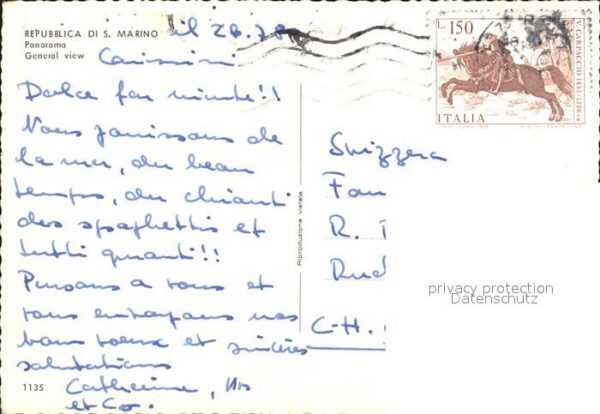 REPUBBLICA DI S. MARINO
Panorama
General view
il 26.7.8
Carissimi
Dolce far niente!!
Nous jouissons de
la mer, du beau
temps, du chianti
des spaghettis et
tutti quanti!!!
Pensons à vous et
vous envoyons nos
bons voeux et sincères
salutations
Catherine,
et Co.
1135
Riproduzione vietata
L. 150
V. CARPACCIO 1455-1526
ITALIA
Svizzera
Fam
R.
Rud
C-H.
privacy protection
Datenschutz